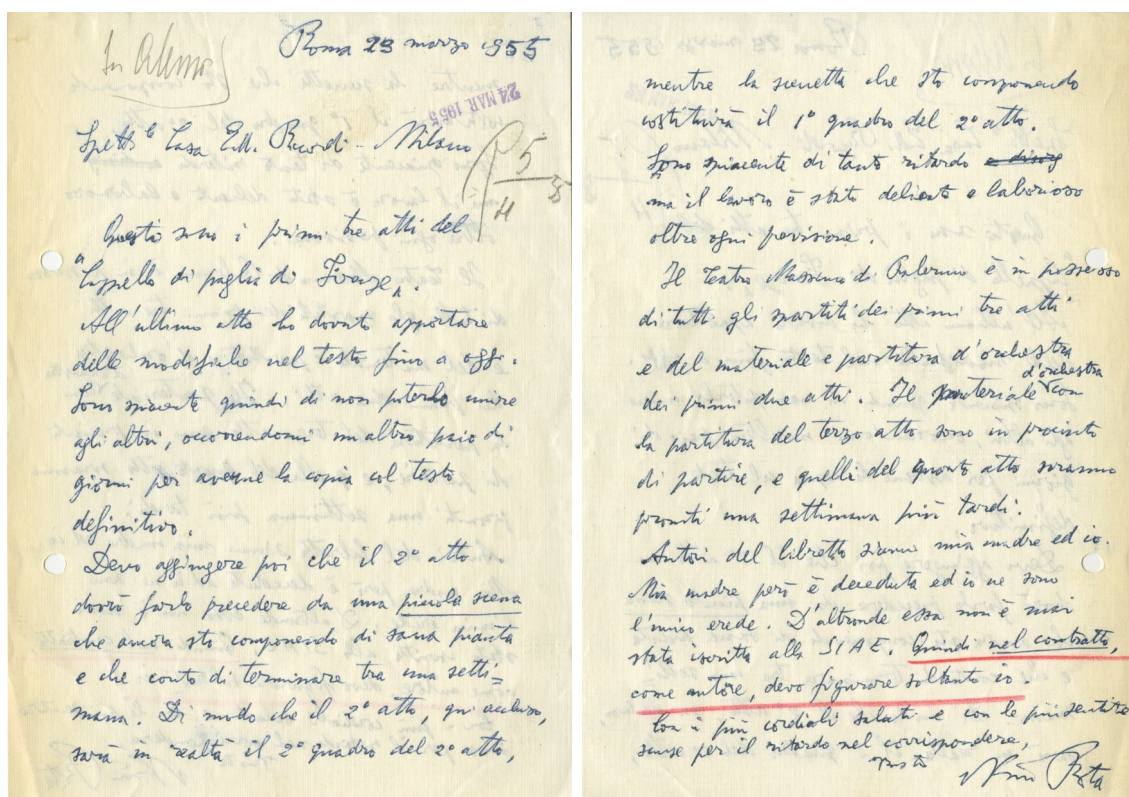 Roma 23 marzo 1955
24 MAR 1955
Spett.le Casa Ed. Ricordi - Milano
5
H
Questi sono i primi tre atti del
"Cappello di paglia di Firenze".
All'ultimo atto ho dovuto apportare
delle modifiche nel testo fino a oggi.
Sono spiacente quindi di non poterlo unire
agli altri, occorrendomi un altro paio di
giorni per averne la copia col testo
definitivo.
Devo aggiungere poi che il 2° atto
dovrò farlo precedere da una piccola scena
che ancora sto componendo di sana pianta
e che conto di terminare tra una setti=
mana. Di modo che il 2° atto, qui accluso,
sarà in realtà il 2° quadro del 2° atto,
mentre la scenetta che sto componendo
costituirà il 1° quadro del 2° atto.
Sono spiacente di tanto ritardo
ma il lavoro è stato delicato e laborioso
oltre ogni previsione.
Il Teatro Massimo di Palermo è in possesso
di tutti gli spartiti dei primi tre atti
e del materiale e partitura d'orchestra
dei primi due atti. Il materiale d'orchestra con
la partitura del terzo atto sono in procinto
di partire, e quelli del quarto atto saranno
pronti una settimana più tardi.
Autori del libretto siamo mia madre ed io.
Mia madre però è deceduta ed io ne sono
l'unico erede. D'altronde essa non è mai
stata iscritta alla SIAE. Quindi nel contratto,
come autore, devo figurare soltanto io.
Con i più cordiali saluti e con le più sentite
scuse per il ritardo nel corrispondere,
Nino Rota